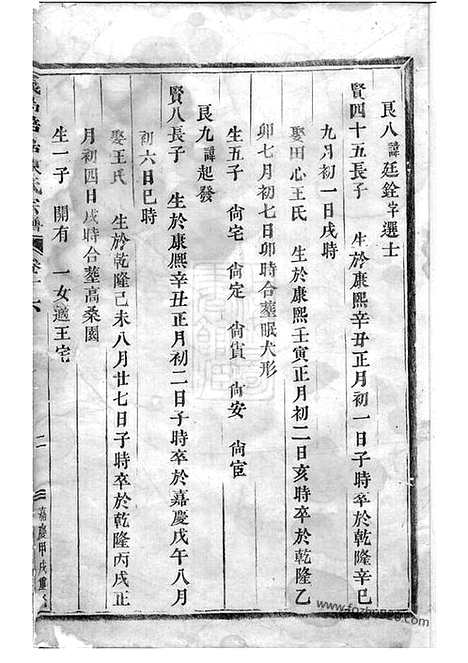 良八 諱廷銓字選士
賢四十五長子 生於康熙辛丑正月初一日子時卒於乾隆辛巳
九月初一日戌時
娶田心王氏 生於康熙壬寅正月初二日亥時卒於乾隆乙
卯七月初七日卯時合塟眠犬形
生五子 尙宅 尙定 尙賔 尙安 尙宦
良九 諱起發
賢八長子 生於康熙辛丑正月初二日子時卒於嘉慶戊午八月
初六日巳時
娶王氏 生於乾隆己未八月廿七日子時卒於乾隆丙戌正
月初四日戌時合塟高桑園
生一子 開有 一女適王宅
氏宗譜 卷十六 二 嘉慶甲戌重
www.fozhu920.com